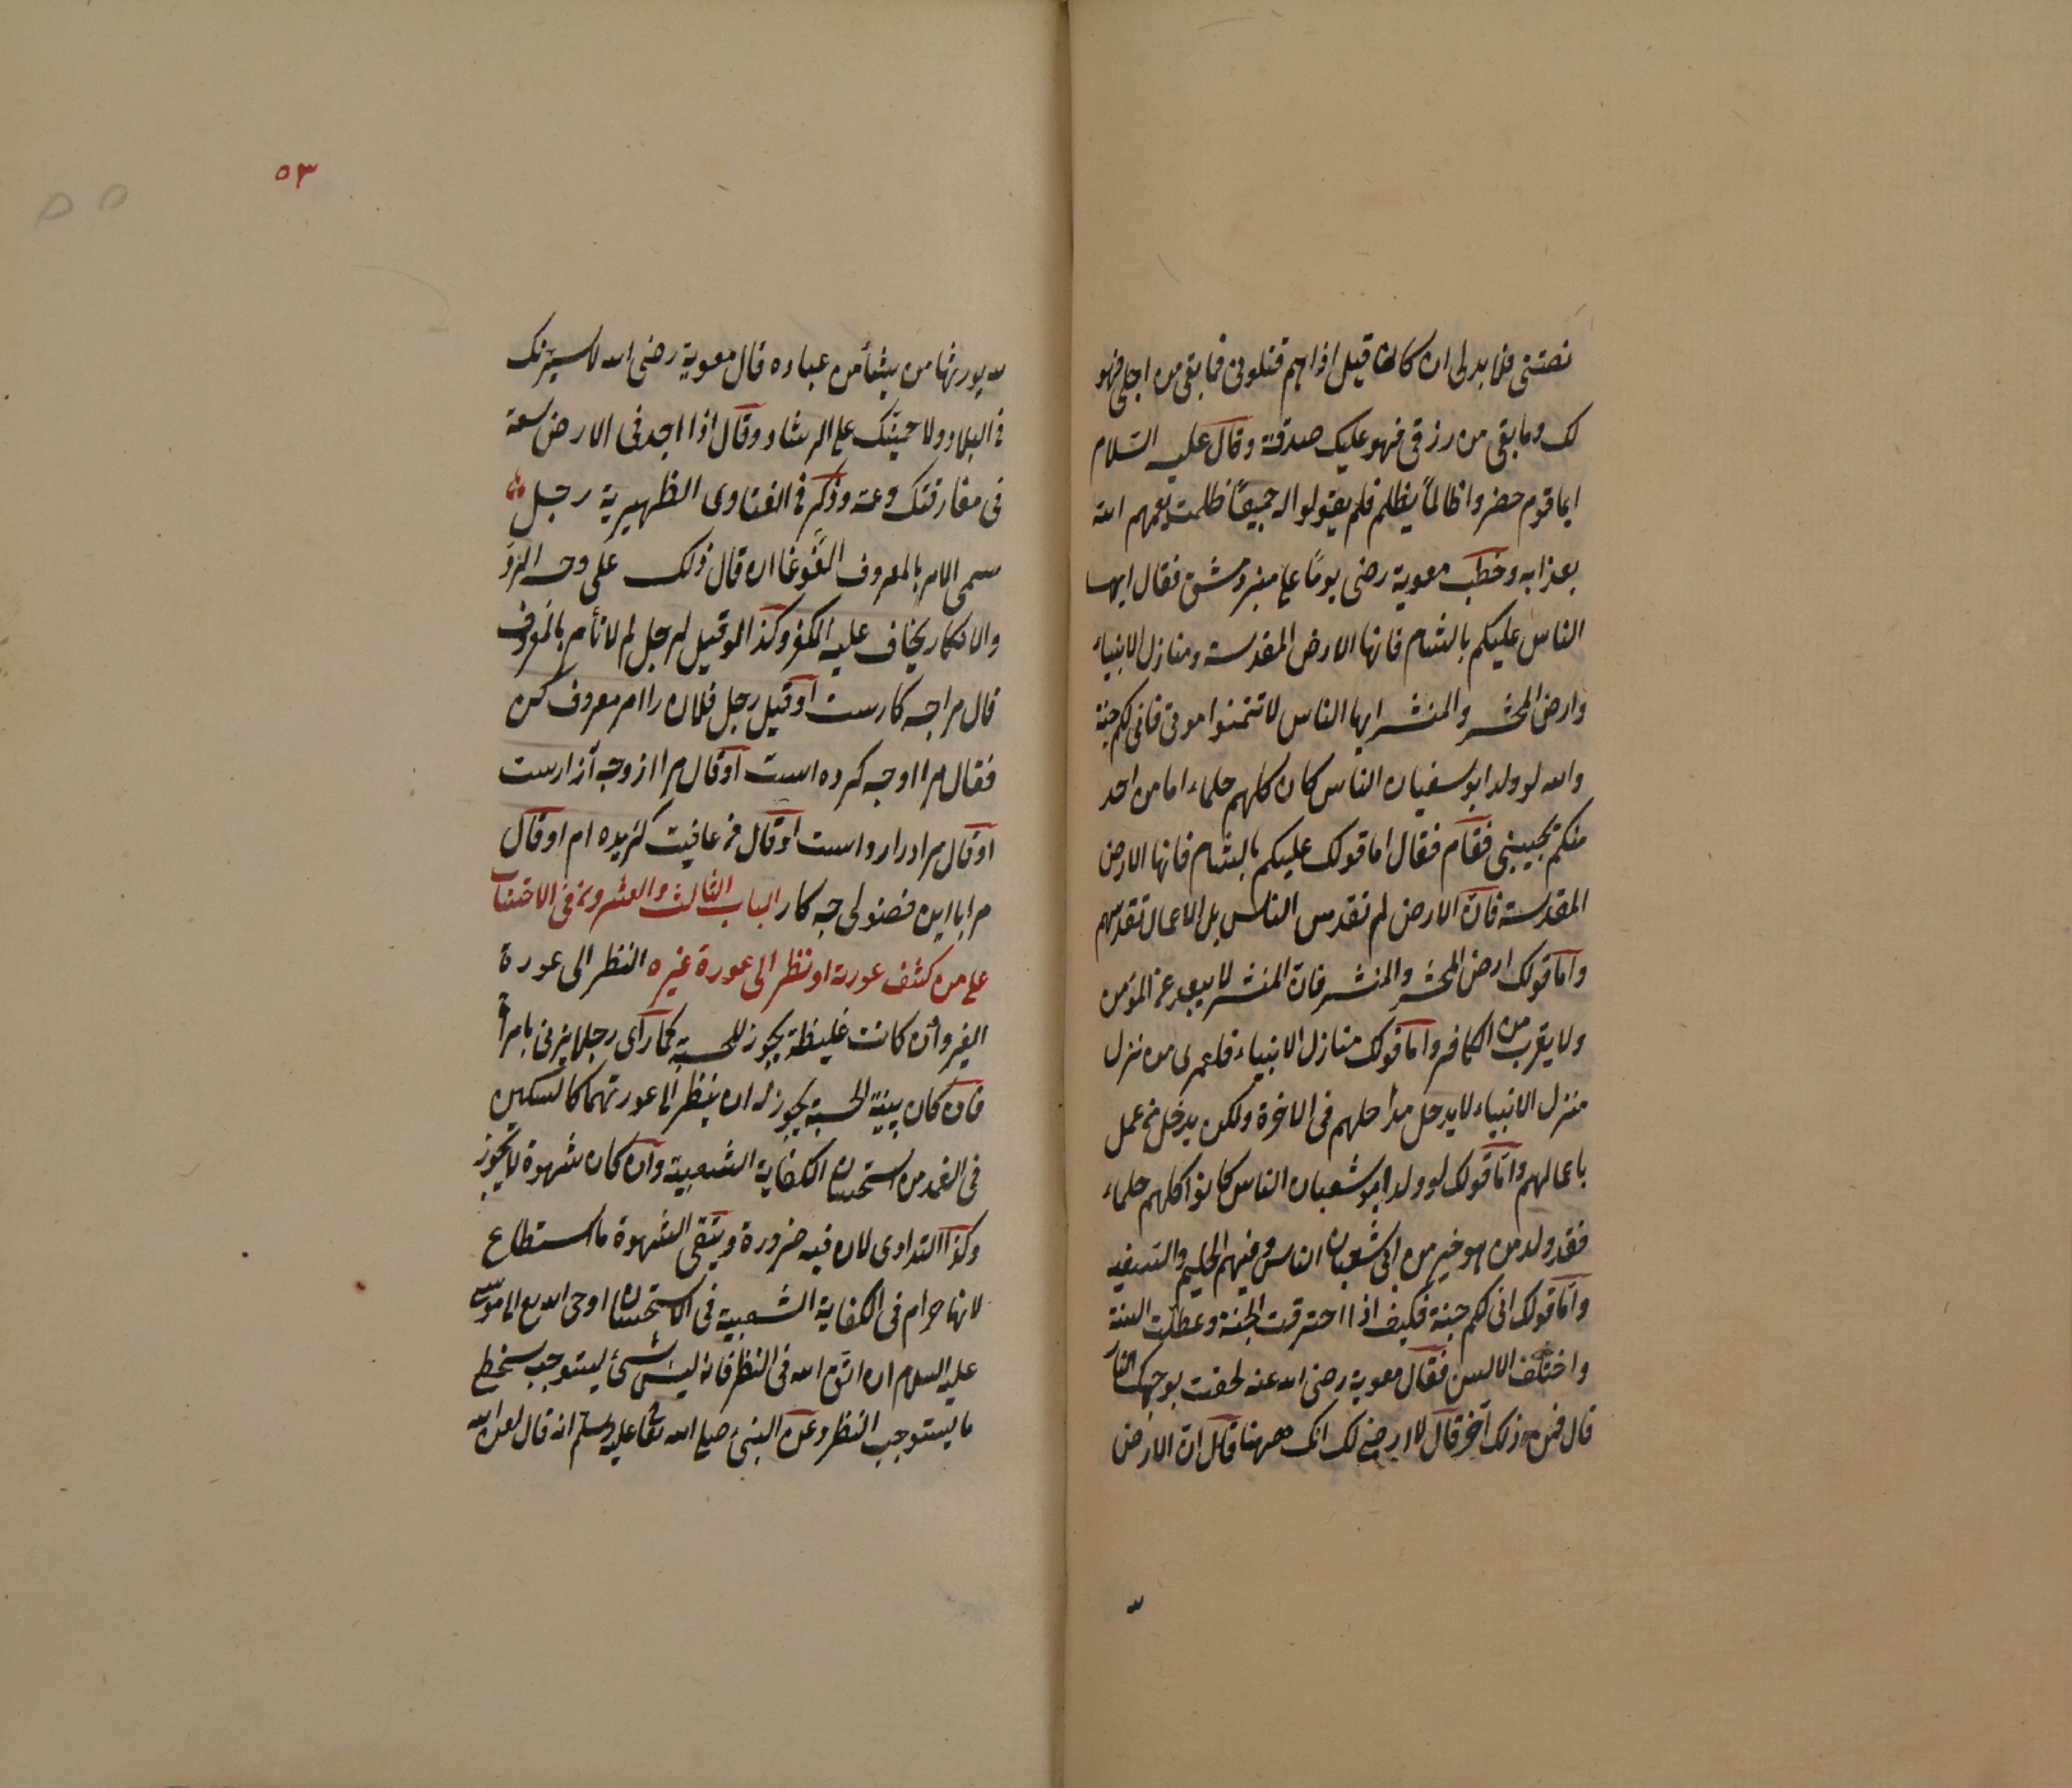 نصتنى فلا بد لى ان كان قيل اذا هم قتلونى فما بقى من اجلى فهو
لك وما بقى من رزقى فهو عليك صدقة وقال عليه السّلام
ايما قوم حضروا ظالماً يظلم فلم يقولوا له جميعاً ظلمت يعمهم الله
بعذابه وخطب معوية رضى يوماً على منبر دمشق فقال ايها
الناس عليكم بالشام فانها الارض المقدسة ومنازل الانبياء
وارض المحشر والمنشر ايها الناس لا تتمنوا موتى فانى لكم جنة
والله لو ولد ابو سفيان الناس كان كلهم حلماء اما من احد
منكم يجيبنى فقام فقال اما قولك عليكم بالشام فانها الارض
المقدسة فانّ الارض لم تقدس الناس بل الاعمال تقدسهم
وامّا قولك ارض المحشر والمنشر فانّ المنشر لا يبعد عن المؤمن
ولا يقرب من الكافر وامّا قولك منازل الانبياء فلعمرى من نزل
منزل الانبياء لا يدخل مداخلهم فى الاخرة ولكن يدخل من عمل
باعمالهم وامّا قولك لو ولد ابو شعبان الناس كانوا كلهم حلماء
فقد ولد من هو خير من ابى شعبان الناس وفيهم الحليم والسفيه
وامّا قولك انى لكم جنة فكيف اذا احترقت الجنة وعطلت السنة
واختلف الالسن فقال معوية رضى الله عنه لحقت بوجهك النار
قال فمن ذلك آخر قال لا ارضى لك انك ههنا قال انّ الارض
٥٣
لله يورثها من يشأ من عباده قال معوية رضى الله لاسيّرنك
فى البلاد ولا حمينّك على الرشاد وقال اذا اجد فى الارض سعة
فى مفارقتك وعة وذكر فى الفتاوى الظهيرية رجل
سمى الامر بالمعروف الغَوغا ان قال ذلك على وجه الردّ
والانكار يخاف عليه الكفر وكذا لو قيل لرجل لم لا تأمر بالمعروف
قال مراجه كارست او قيل رجل فلان را امر معروف كن
فقال مرا اوجه كرده است او قال مرا ازوجه آزارست
او قال مرا درارو است او قال من عافيت كزيده ام او قال
مرا با اين فضولى جه كار الباب الثالث والعشرون فى الاحتساب
على من كشف عورته او نظر الى عورة غيره النظر الى عورة
الغير وان كانت غليظة يجوز للحسبة كما رأى رجلا يزنى بامرأة
فان كان بينة الحسبة يجوز له ان ينظر الى عورتهما كالسكين
فى الغمد من استحسان الكفاية الشعبية وان كان شهوة لا يجوز
وكذا التداوى لان فيه ضرورة ويتقى الشهوة ما استطاع
لانها حرام فى الكفاية الشعبية فى الاستحسان اوحى الله تع الى موسى
عليه السلام ان اتق الله فى النظر فانه ليس شئ يستوجب سخطى
ما يستوجب النظر وعن النبىّ صلى الله تعا عليه وسلم انه قال لعن الله